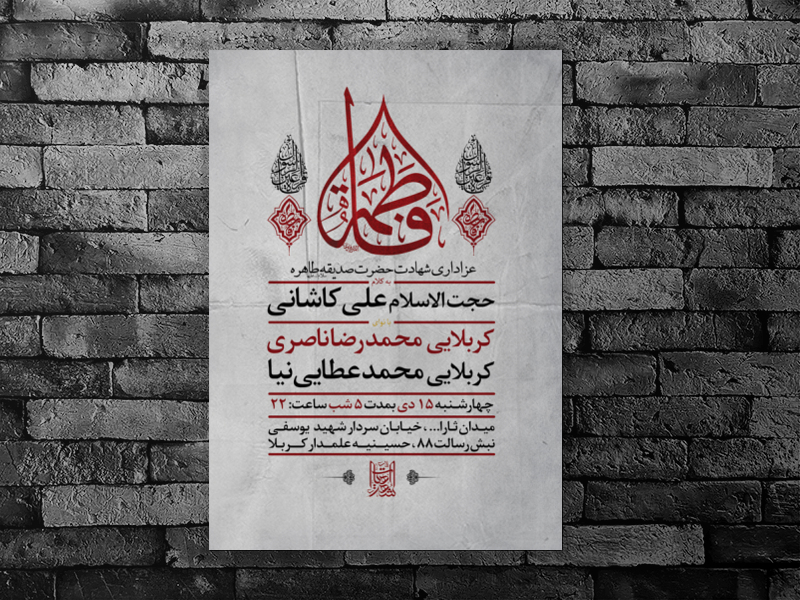 فاطمة
عزاداری شهادت حضرت صدیقه طاهره
به کلام
حجت الاسلام علی کاشانی
با نوای
کربلایی محمدرضا ناصری
کربلایی محمد عطایی نیا
چهارشنبه ۱۵ دی بمدت ۵ شب ساعت: ۲۲
میدان ثارا...، خیابان سردار شهید یوسفی
نبش رسالت ۸۸، حسینیه علمدار کربلا